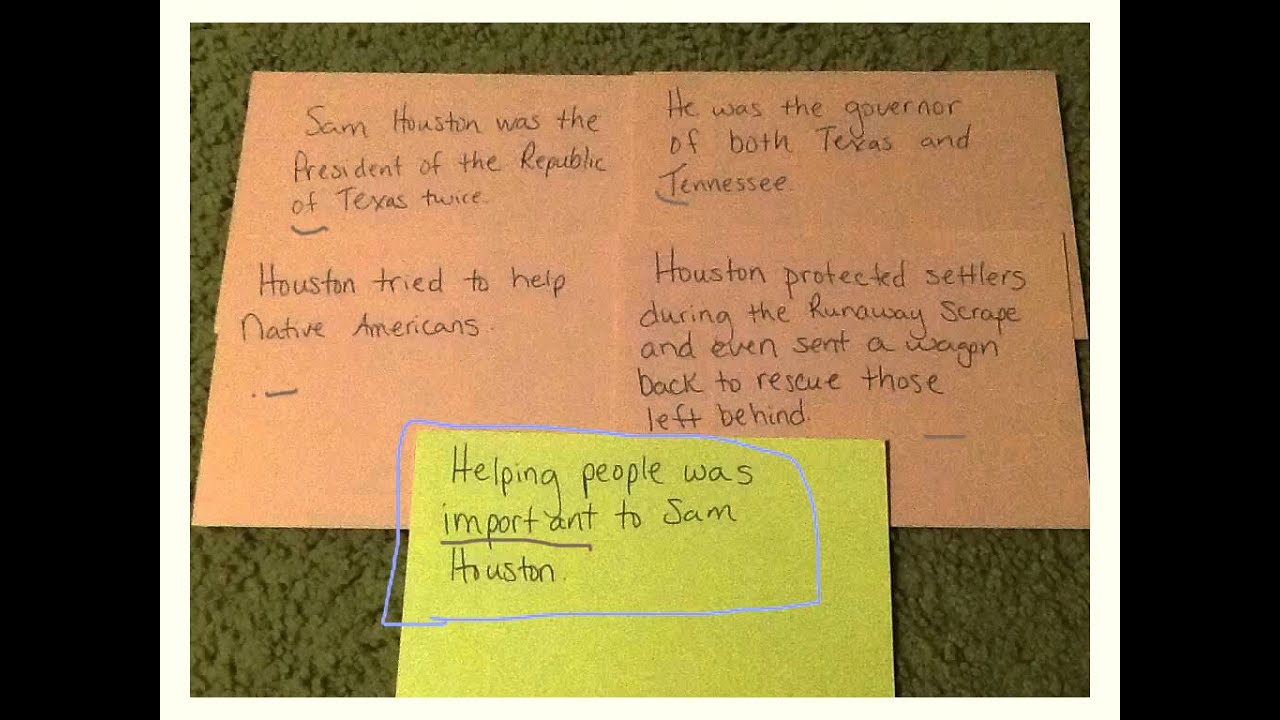 Sam Houston was the
President of the Republic
of Texas twice.
He was the governor
of both Texas and
Tennessee.
Houston tried to help
Native Americans.
Houston protected settlers
during the Runaway Scrape
and even sent a wagon
back to rescue those
left behind.
Helping people was
important to Sam
Houston.